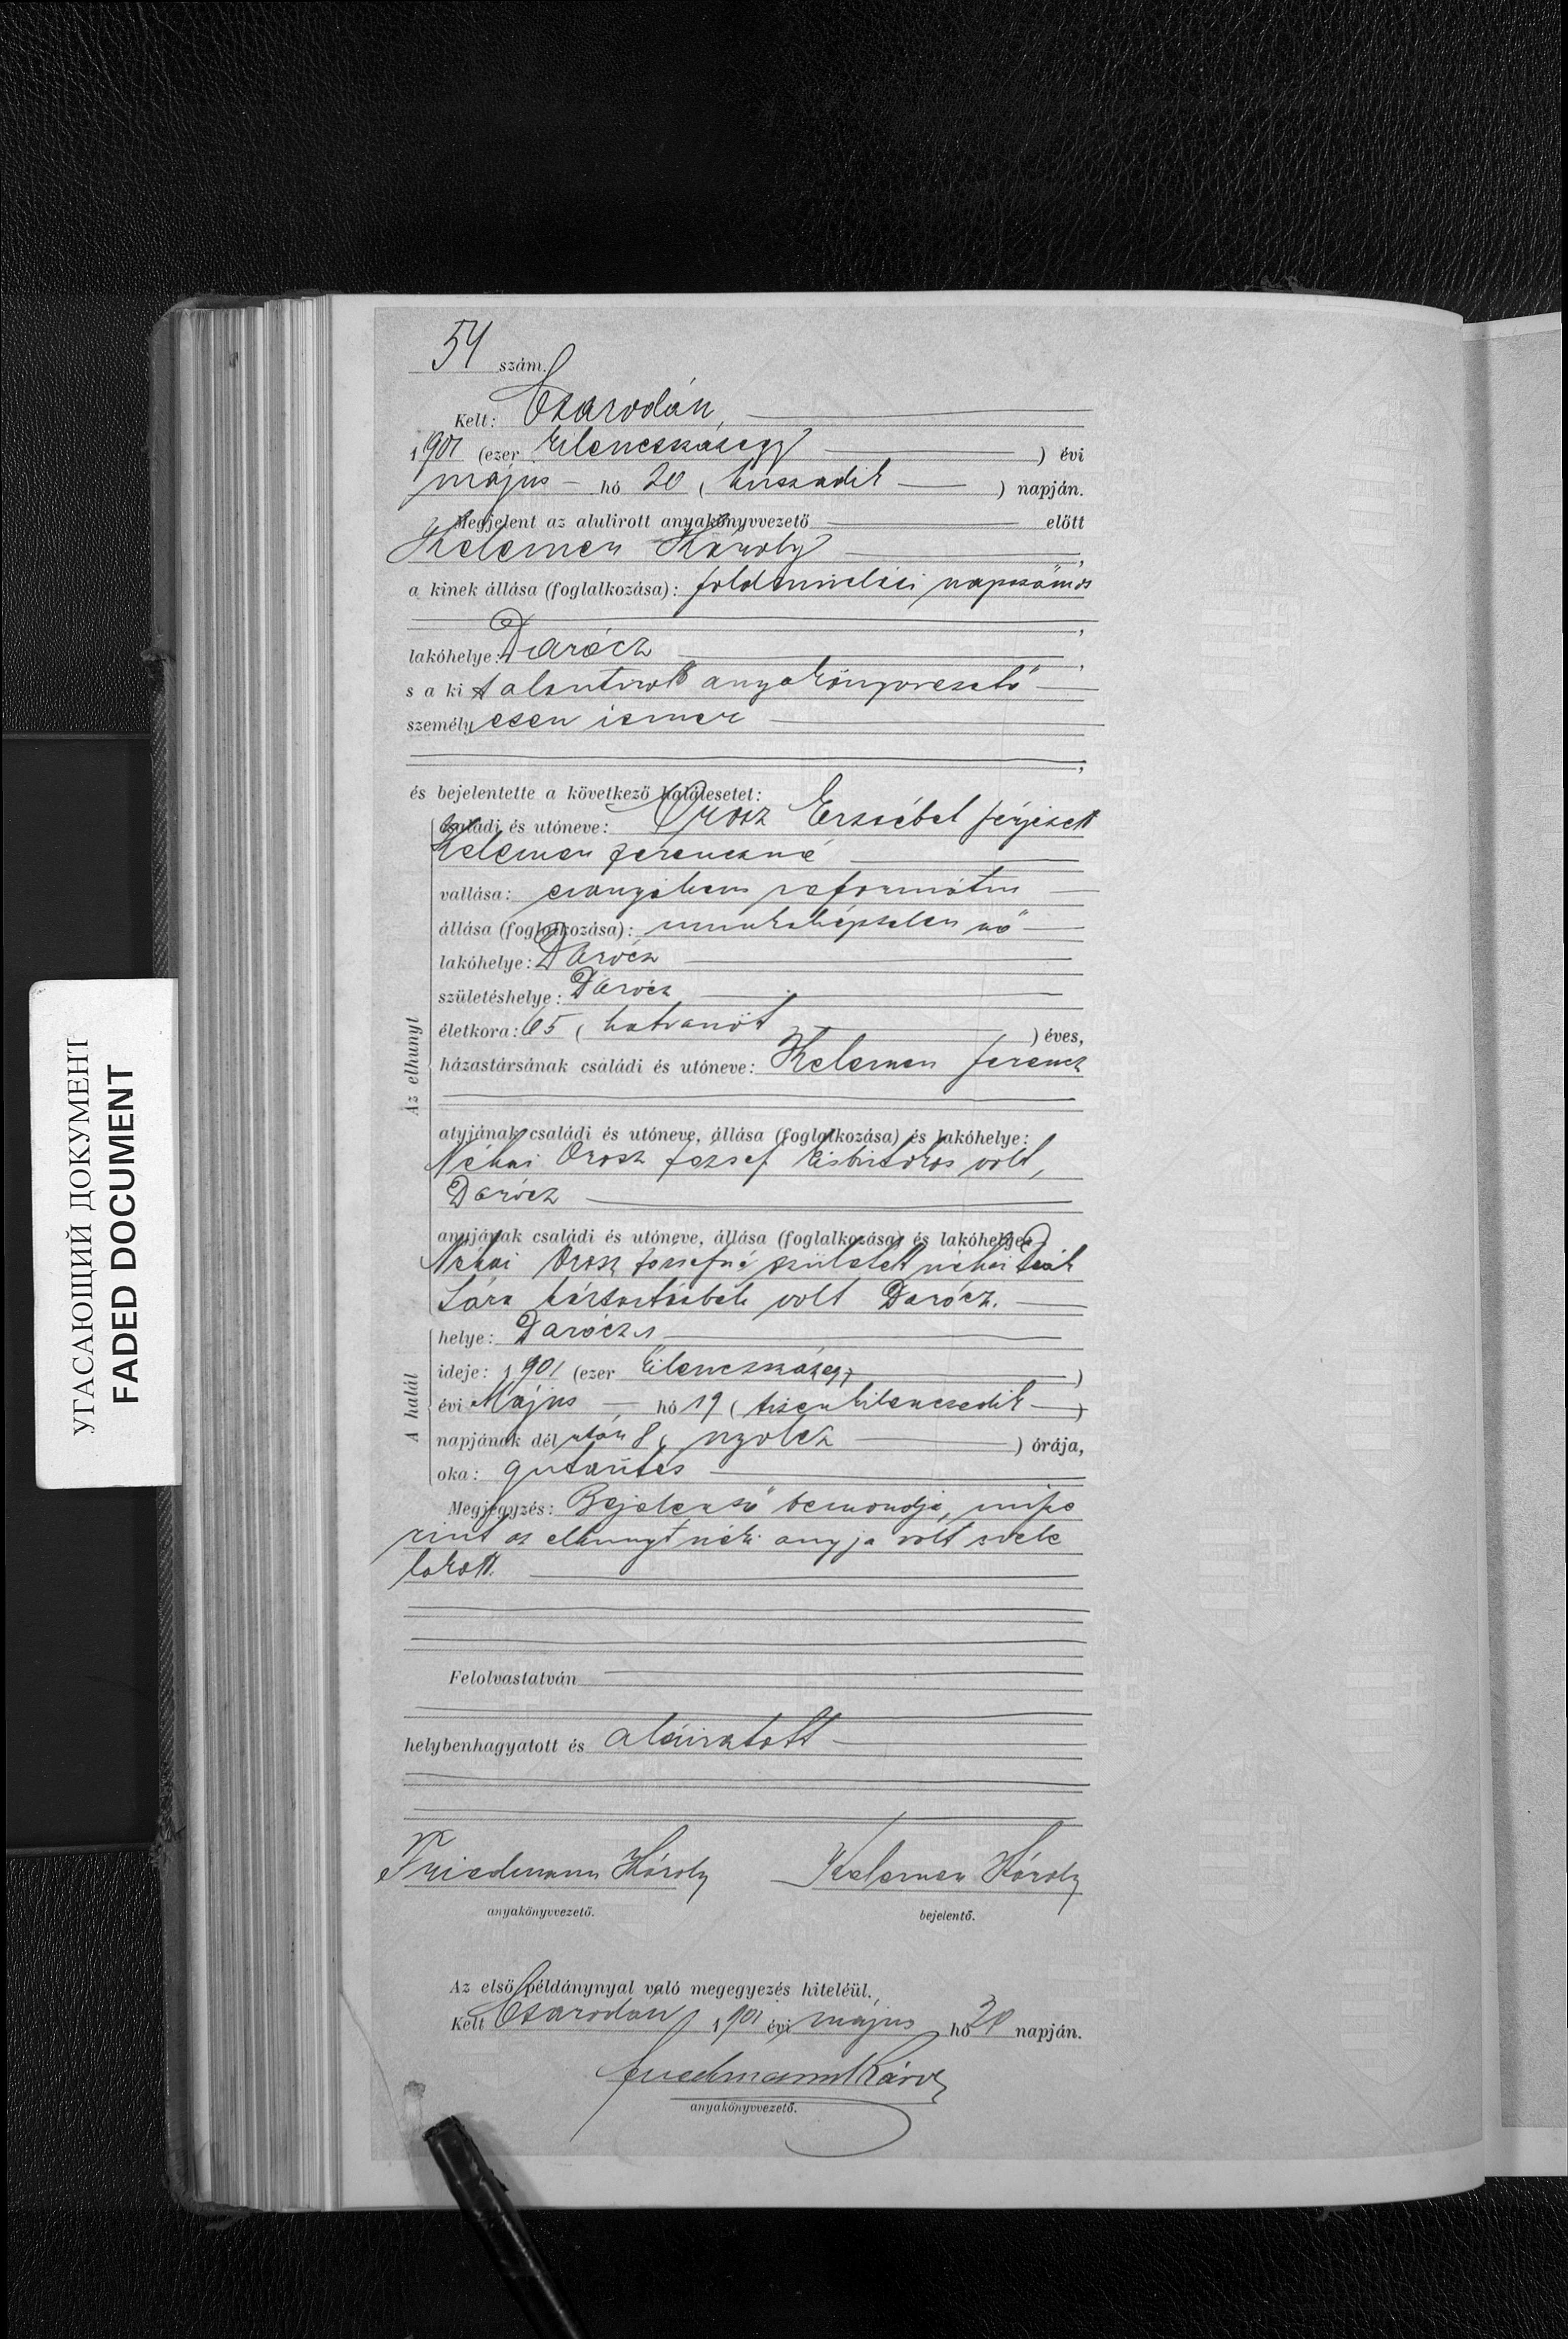 54 szám.
Kelt: Csarodán,
1901 (ezer kilenczszázegy ) évi
május hó 20 ( huszadik ) napján.
Megjelent az alulirott anyakönyvvezető előtt
Kelemen Károly ,
a kinek állása (foglalkozása): földmivelési napszámos
,
lakóhelye: Darócz ,
s a kit alantirott anyakönyvvezető
személyesen ismer
,
és bejelentette a következő halálesetet:
Az elhunyt
családi és utóneve: Orosz Erzsébet férjezett
Kelemen Ferenczné
vallása: evangelium református
állása (foglalkozása): munkaképtelen nő
lakóhelye: Darócz
születéshelye: Darócz
életkora: 65 ( hatvanöt ) éves,
házastársának családi és utóneve: Kelemen Ferencz
atyjának családi és utóneve, állása (foglalkozása) és lakóhelye:
Néhai Orosz József kisbirtokos volt,
Darócz
anyjának családi és utóneve, állása (foglalkozása) és lakóhelye:
Néhai Orosz Józsefné született néhai Deák
Sára háztartásbeli volt Darócz.
A halál
helye: Darócz
ideje: 1901 (ezer kilenczszázegy )
évi Május hó 19 ( tizenkilenczedik )
napjának dél után 8 ( nyolcz ) órája,
oka: gutaütés
Megjegyzés: Bejelentő bemondja, misze
rint az elhunyt néki anyja volt s vele
lakott.
Felolvastatván
helybenhagyatott és aláiratott
Friedmann Károly Kelemen Károly
anyakönyvvezető. bejelentő.
Az első példánynyal való megegyezés hiteléül.
Kelt Csarodán 1901 évi május hó 20 napján.
Friedmann Károly
anyakönyvvezető.
УГАСАЮЩИЙ ДОКУМЕНТ
FADED DOCUMENT